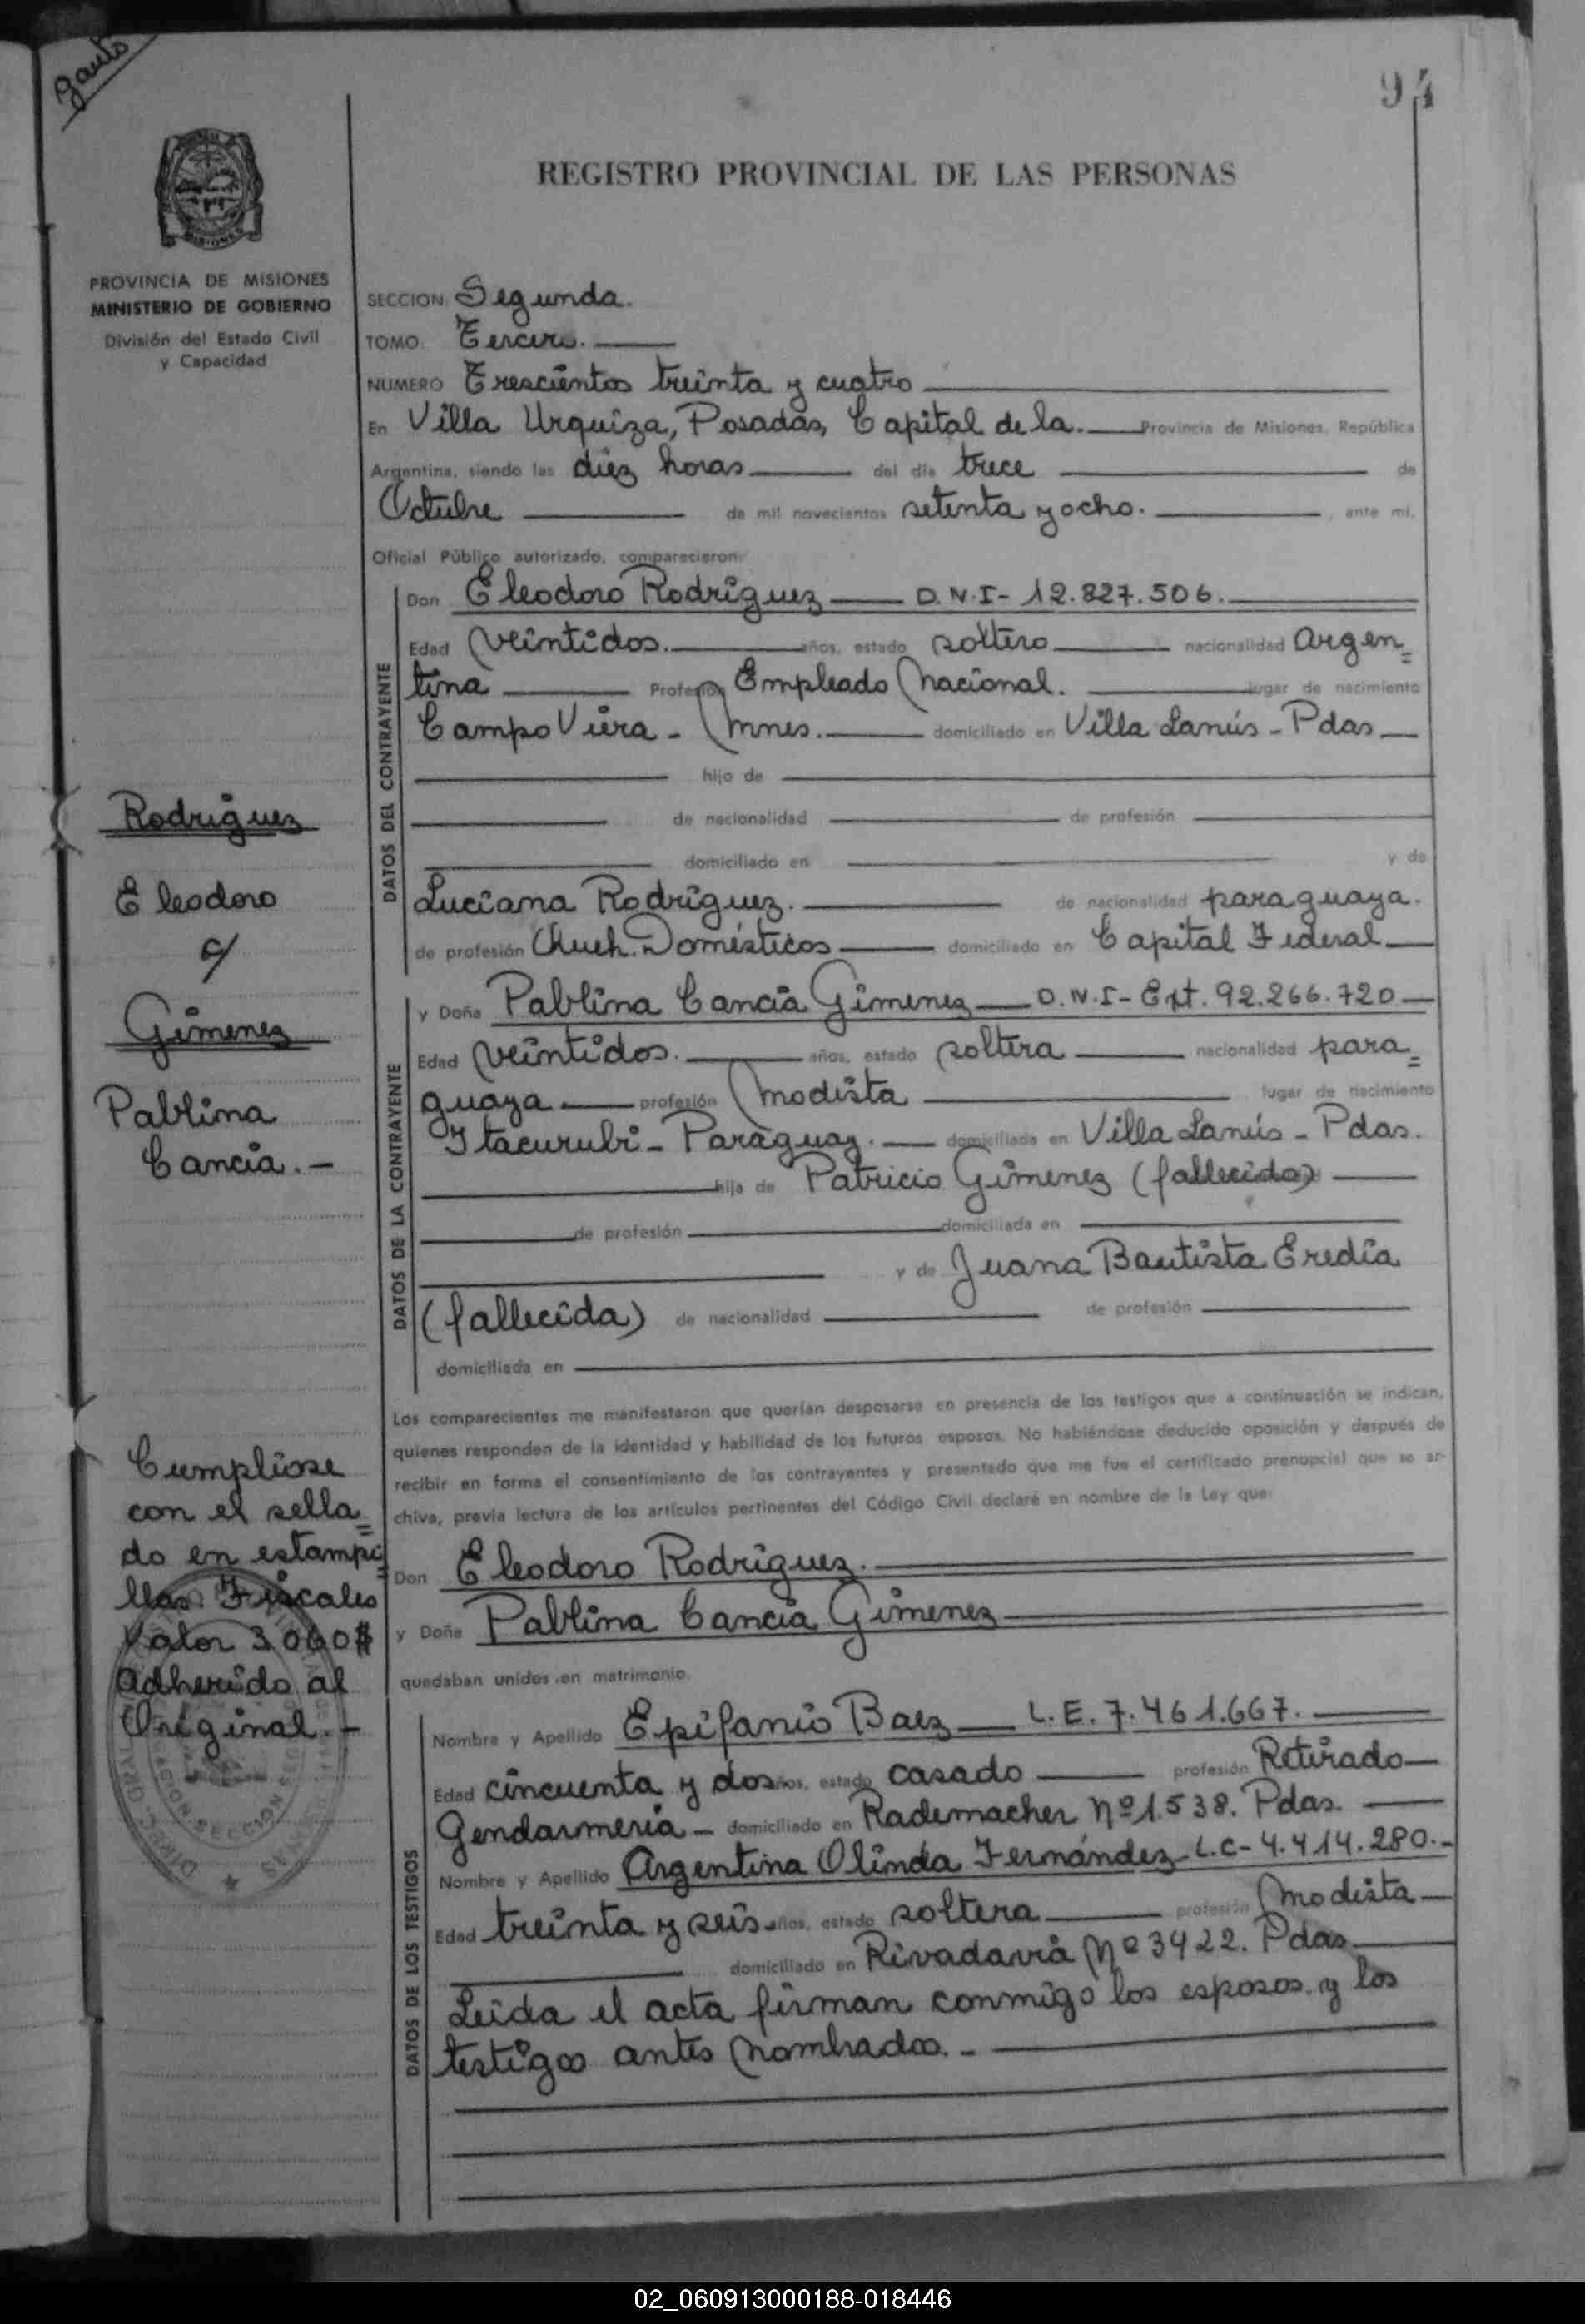 94
REGISTRO PROVINCIAL DE LAS PERSONAS
MISIONES
PROVINCIA DE MISIONES
MINISTERIO DE GOBIERNO
División del Estado Civil
y Capacidad
Rodriguez
Eleodoro
c/
Gimenez
Pablina
Cancia.-
Cumpliose
con el sella=
do en estampi=
llas Fiscales
Valor 3000$
Adherido al
Original.-
SECCION Segunda.
TOMO Tercero.
NUMERO Trescientos treinta y cuatro
En Villa Urquiza, Posadas, Capital de la. Provincia de Misiones, República
Argentina, siendo las diez horas del día trece de
Octubre de mil novecientos setenta y ocho. , ante mí,
Oficial Público autorizado, comparecieron:
DATOS DEL CONTRAYENTE
Don Eleodoro Rodriguez D.N.I- 12.827.506.
Edad veintidos. años, estado soltero nacionalidad argen=
tina Profesión Empleado Nacional. lugar de nacimiento
Campo Viera - Mnes. domiciliado en Villa Lanús - Pdas
hijo de
de nacionalidad de profesión
domiciliado en y de
Luciana Rodriguez. de nacionalidad paraguaya.
de profesión Queh. Domésticos domiciliada en Capital Federal
DATOS DE LA CONTRAYENTE
y Doña Pablina Cancia Gimenez D.N.I- Ext. 92.266.720
Edad veintidos. años, estado soltera nacionalidad para=
guaya profesión Modista lugar de nacimiento
Itacurubi - Paraguay. domiciliada en Villa Lanús - Pdas.
hija de Patricio Gimenez (fallecido)
de profesión domiciliada en
y de Juana Bautista Eredia
(fallecida) de nacionalidad de profesión
domiciliada en
Los comparecientes me manifestaron que querían desposarse en presencia de los testigos que a continuación se indican,
quienes responden de la identidad y habilidad de los futuros esposos. No habiéndose deducido oposición y después de
recibir en forma el consentimiento de los contrayentes y presentado que me fue el certificado prenupcial que se ar-
chiva, previa lectura de los artículos pertinentes del Código Civil declaré en nombre de la Ley que:
Don Eleodoro Rodriguez.
y Doña Pablina Cancia Gimenez
quedaban unidos en matrimonio.
DATOS DE LOS TESTIGOS
Nombre y Apellido Epifanio Baez L.E. 7.461.667.
Edad cincuenta y dos años, estado casado profesión Retirado
Gendarmeria - domiciliado en Rademacher Nº 1.538. Pdas.
Nombre y Apellido Argentina Olinda Fernández L.C- 4.414.280.-
Edad treinta y seis años, estado soltera profesión Modista
domiciliado en Rivadavia Nº 3422. Pdas
Leida el acta firman conmigo los esposos y los
testigos antes nombrados.-
02_060913000188-018446